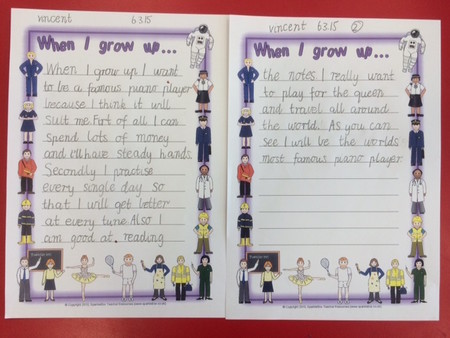 vincent 6.3.15
When I grow up...
When I grow up I want
to be a famous piano player
because I think it will
suit me. Fort of all I can
spend lots of money
and will have steady hands.
Secondly I practise
every single day so
that I will get better
at every tune. Also I
am good at reading
vincent 6.3.15 2
When I grow up...
the notes. I really want
to play for the queen
and travel all around
the world. As you can
see I will be the worlds
most famous piano player